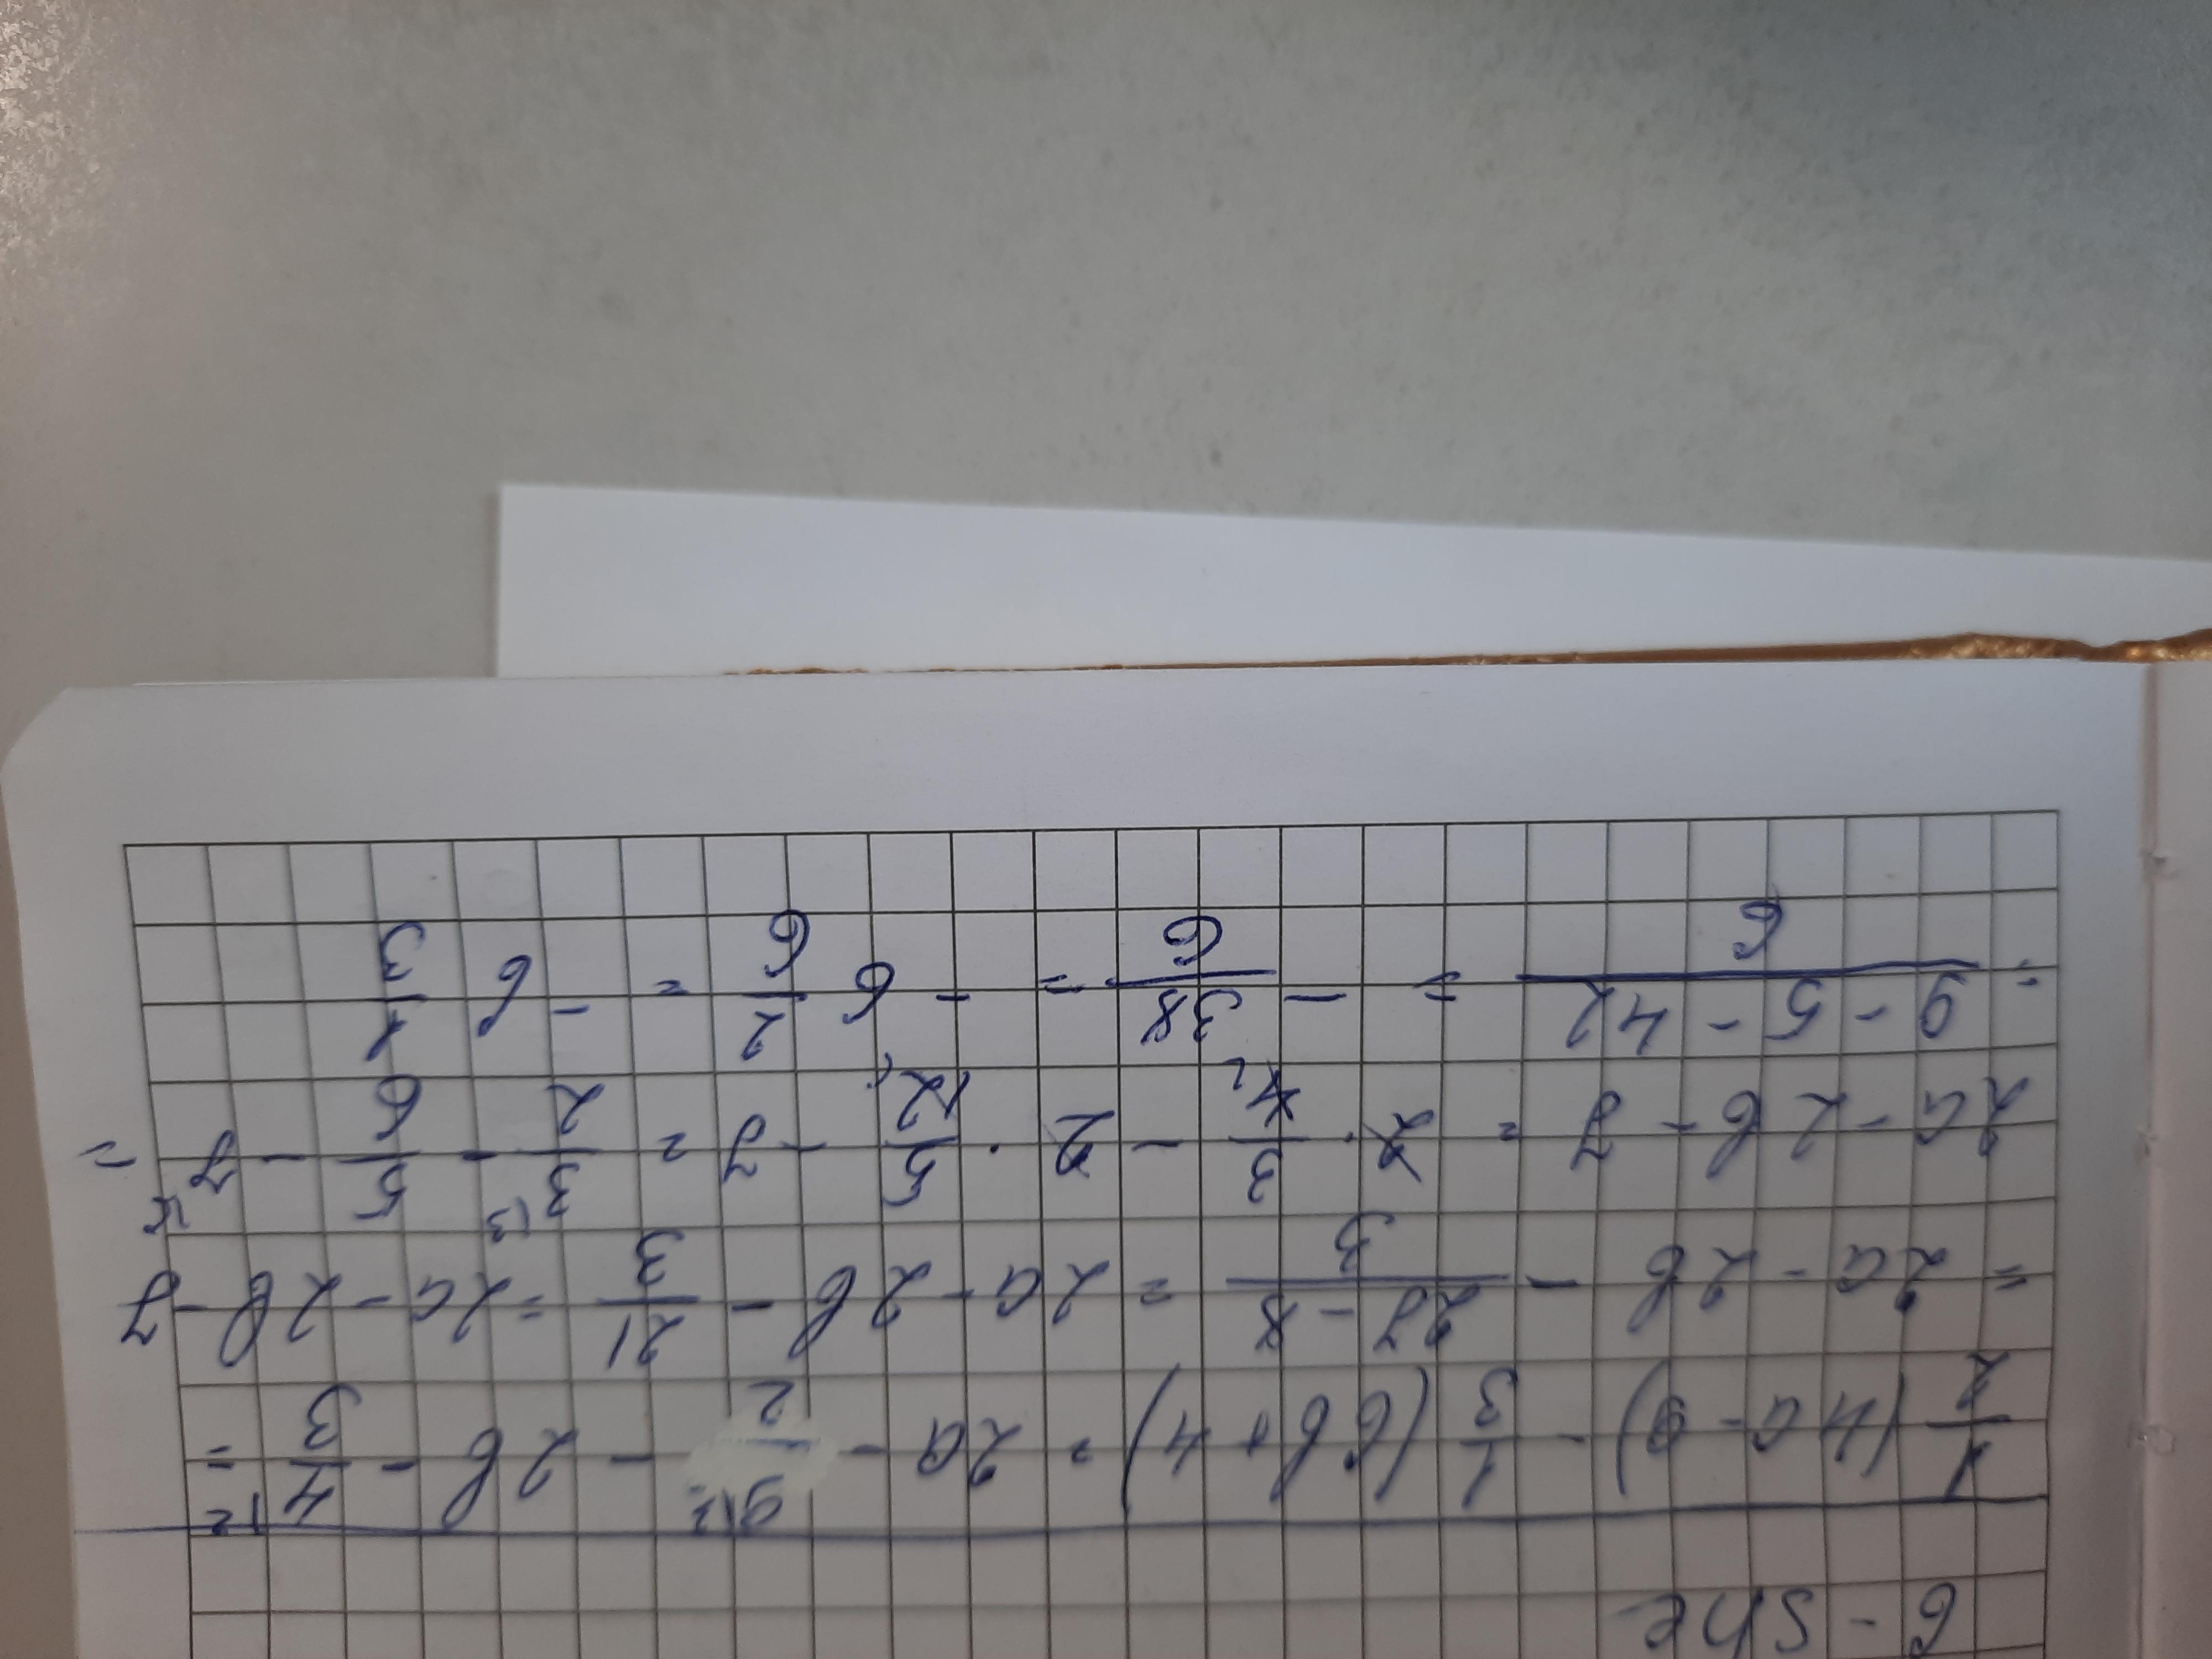 1/2 (4a - 9) - 1/3 (6b + 4) = 2a - 9/2 - 2b - 4/3 =
= 2a - 2b - (27 - 8)/3 = 2a - 2b - 21/3 = 2a - 2b - 7
2a - 2b - 7 = 2 · 3/4 - 2 · 5/12 - 7 = 3/2 - 5/6 - 7 =
= (9 - 5 - 42)/6 = - 38/6 = - 6 2/6 = - 6 1/3